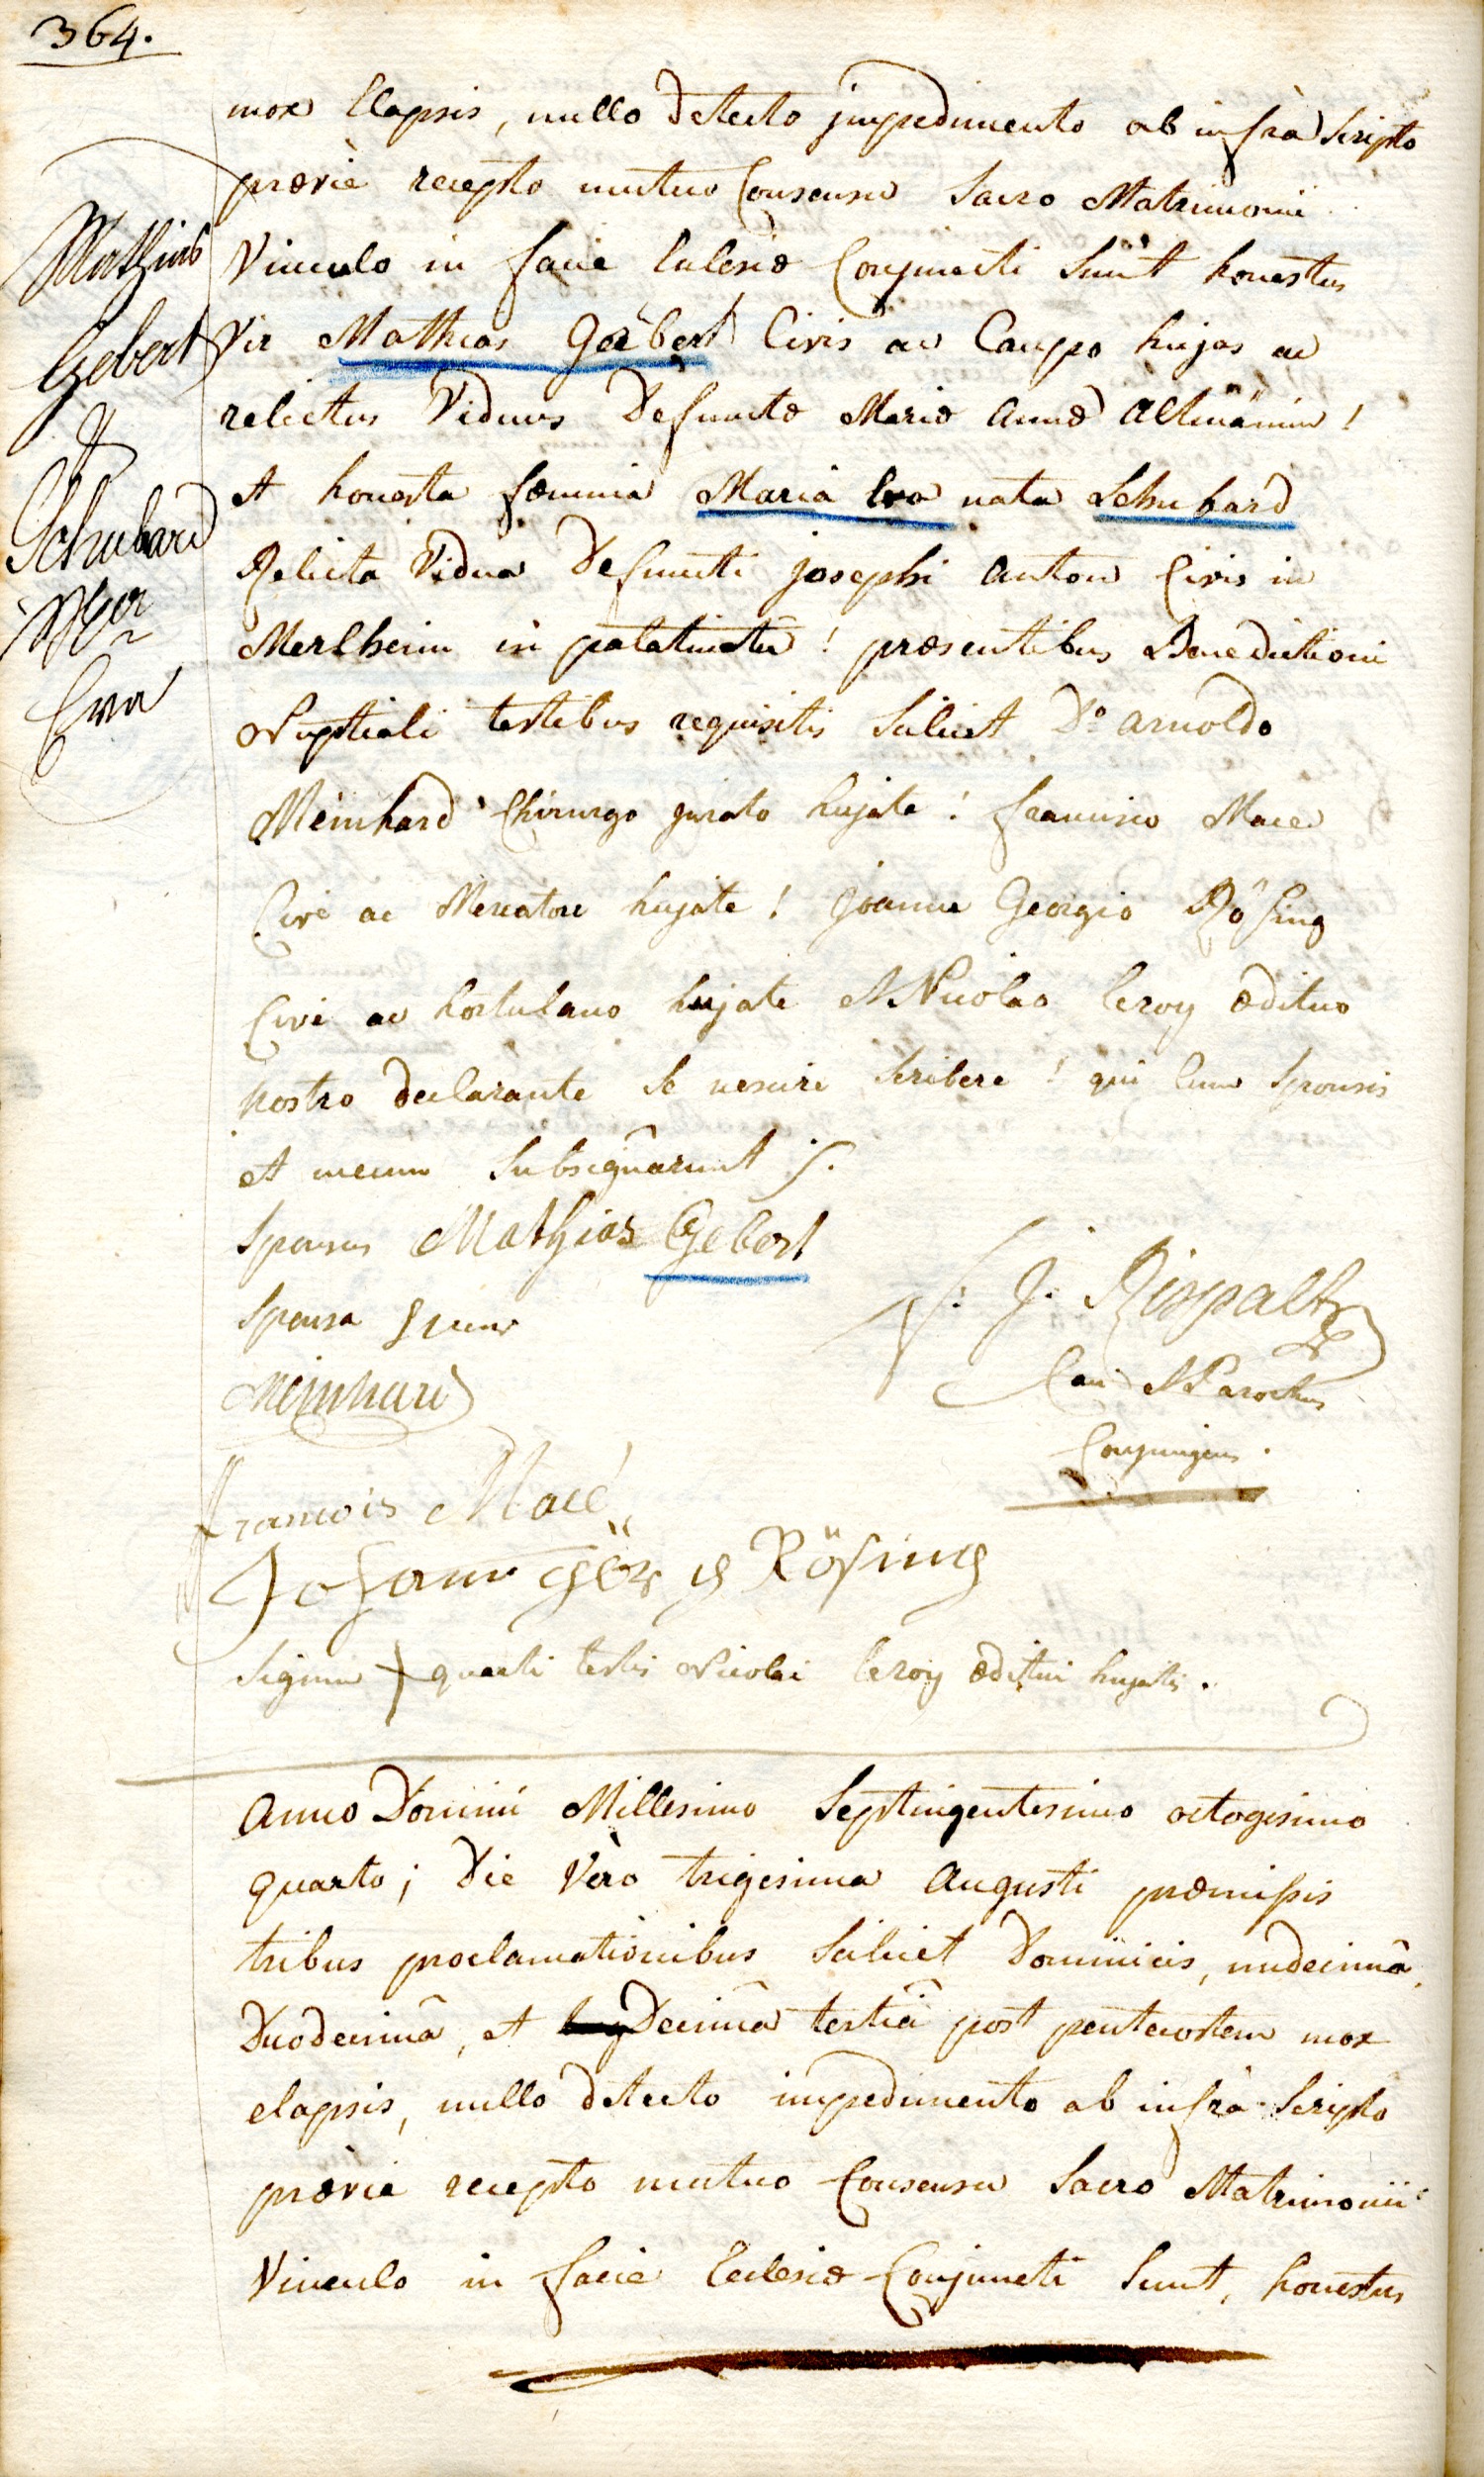 364.
mox Elapsis, nullo detecto jmpedimento ab infrà Scripto
præviè recepto mutuo Consensu Sacro Matrimonii
Vinculo in facie Eclesiæ Conjuncti Sunt honestus
Vir Mathias Gäbert Civis ac Caupo hujas ac
relictus Viduus Defunctæ Mariæ annæ Altmännin!
et honesta fœmina Maria Eva nata Schubard
Relicta Vidua Defuncti josephi anton Civis in
Merlheim in palatinatu! præsentibus Benedictioni
Nuptiali testibus requisitis Scilicet D° arnoldo
Meinhard Chirurgo jurato hujate! francisco Mace
Cive ac Mercatore hujate! joanne Georgio Rösing
Cive ac hortulano hujate Nicolao leroy ædituo
nostro declarante Se nescire Scribere! qui Cum Sponsis
et mecum Subsignarunt
Mathias
Gebert
&
Schubard
Mar
Eva
Sponsus Mathias Gebert
Sponsa
Meinhard
J. Rispalt
Can Parochus
Conjungens.
francois Macé
Johann Geörg Rösing
Signum + quarti testis Nicolai leroy æditui hujatis.
Anno Domini Millesimo Septingentesimo octogesimo
quarto; Die Vèro trigesima Augusti præmissis
tribus proclamationibus Scilicet Dominicis, undecimâ,
Duodecimâ, et Decimâ tertiâ post pentecostem mox
elapsis, nullo detecto impedimento ab infrà Scripto
prævie recepto mutuo Consensu Sacro Matrimonii
Vinculo in facie Eclesiæ Conjuncti Sunt, honestus